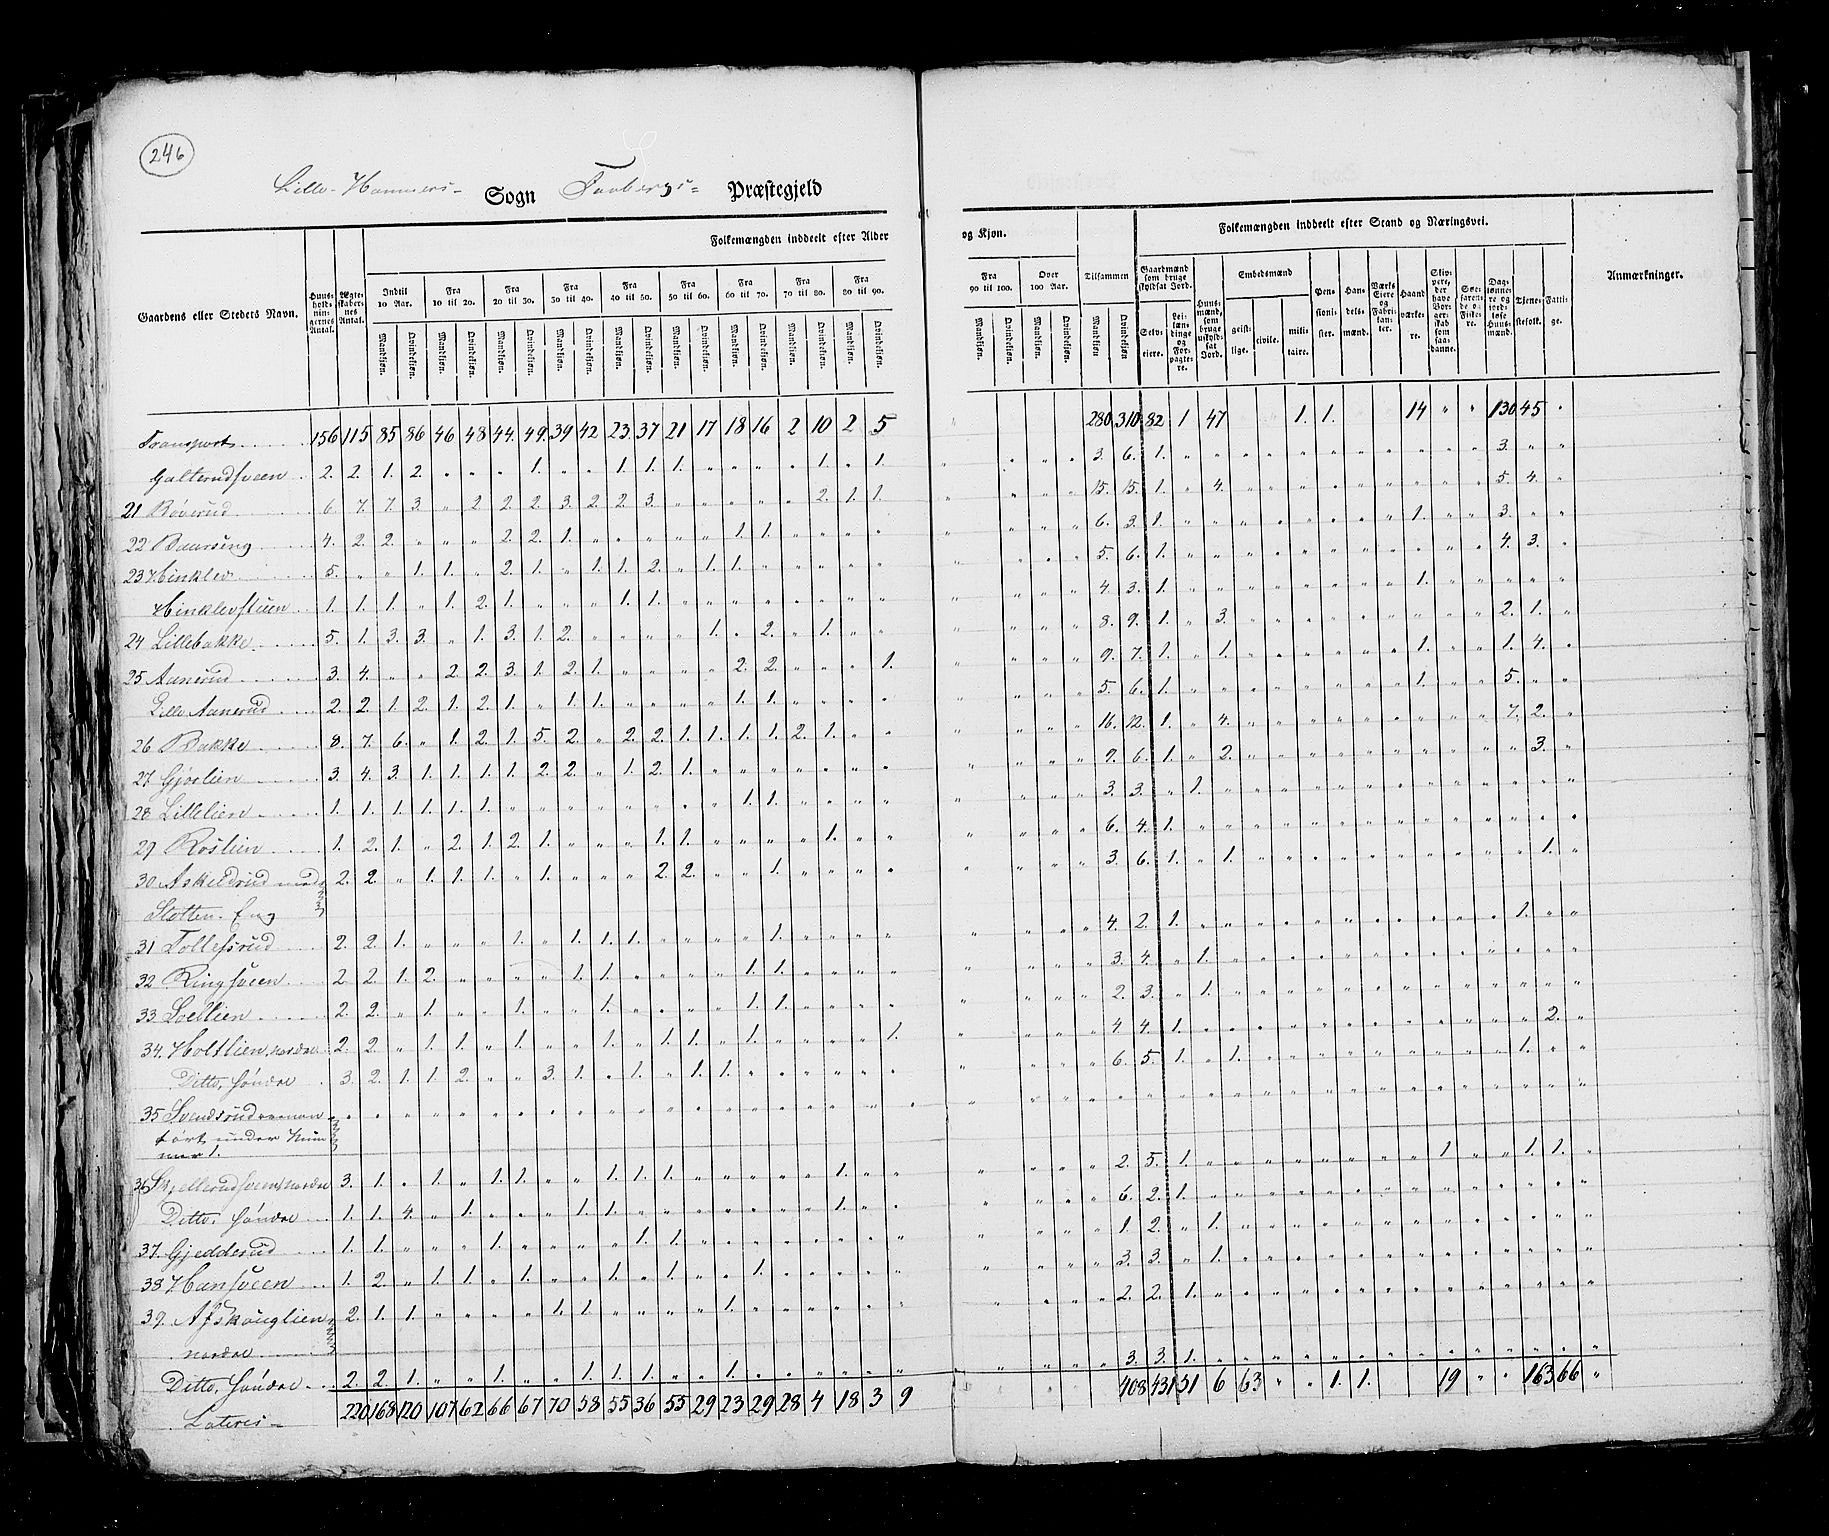 246
Lille-Hammers- Sogn Faabergs- Præstegjeld
Folkemængden inddeelt efter Alder og Kjøn.
Folkemængden inddeelt efter Stand og Næringsvei.
Gaardens eller Stedets Navn.
Huusholdningernes Antal.
Ægteskabernes Antal.
Indtil 10 Aar.
Fra 10 til 20.
Fra 20 til 30.
Fra 30 til 40.
Fra 40 til 50.
Fra 50 til 60.
Fra 60 til 70.
Fra 70 til 80.
Fra 80 til 90.
Fra 90 til 100.
Over 100 Aar.
Tilsammen
Mandkjøn. Qvindekjøn.
Gaardmænd som bruge skyldsat Jord.
Selveiere.
Leilændinge og Forpagtere.
Huusmænd, som bruge uskyldsat Jord.
Embedsmænd
geistlige. civile. militaire.
Pensionister.
Handelsmænd.
Værks Eiere og Fabrikanter.
Haandværkere.
Skippere, der have Borgerskab som saadanne.
Søefarende og Fiskere.
Daglønnere og jordløse Huusmænd.
Tjenestefolk.
Fattige.
Anmærkninger.
Transport 156 115 85 86 46 48 44. 49. 39 42 23. 37 21 17 18 16 2 10 2 5 280 310 82 1 47 1. 1. 14 " " 130 45 "
Galterudsveen 2. 2. 1. 2. " " " 1. " " 1. 1. 1. " " " " 1. " 1. 3. 6. 1. 3.
21 Roverud 6. 7. 7. 3. " 2 2. 2. 3. 2. 2. 3. " " " " " 2. 1. 1. 15. 15. 1. " 4. 5. 4.
22 Baarseng 4. 2. 2. " " " 2. 2. 1. " " " " " 1. 1. 6. 3. 1. 1. 3.
23 Hinklev 5. " " 1. 1. " 2. 1. " 1. 1. 2. " 1. 1. 5. 6. 1. 4. 3.
Hinklevstuen 1. 1. 1. " 1. 2. 1. " " " 1. 1. 4. 3. 1. 1.
24 Lillebakke 5. 1. 3. 3. " 1. 3. 1. 2. " " " " 1. " 2. " 1. 8. 9. 1. " 3. 2. 1.
25 Aanerud 3. 4. " " 2. 2. 3. 1. 2. 1. " " " " 2. 2. " " " 1. 9. 7. 1. " 1. 1. 1. 4.
Lille Aanerud 2. 2. 1. 2. 1. 2. 1. " 1. 1. " " " " 1. 1. 5. 6. 1. 1. 5.
26 Bakke 8. 7. 6. " 1. 2. 1. 5. 2. " 2. 2. 1. 1. 1. 1. 2. 1. 16. 12. 1. " 4. 7. 2.
27 Gjørlien 3. 4. 3. 1. 1. 1. 1. 2. 2. " 1. 2. 1. 9. 6. 1. " 2. 3.
28 Lillelien 1. 1. 1. 1. 1. 1. " " " " " " " " 1. 1. 3. 3. " 1.
29 Roslien 1. 2. 1. " 2. 1. 2. 1. " " " 1. 1. " " " " 1. 6. 4. 1.
30 Askeldrud med 2. 2. " 1. 1. 1. " 1. " " " 2. 2. " " 1. 3. 6. 1. " 1. 1.
Slotten Eng
31 Tollefsrud 2. 2. 1. " " " 1. " 1. 1. 1. " " " " 1. 4. 2. 1. 1.
32 Ringsveen 2. 2. 1. 2. " " " " 1. 1. " " " " 1. 1. 3. 4. " 1.
33 Soellien 2. 2. " 1. " " 1. " " 1. " " " " 1. 1. 2. 3. " 1.
34. Holtlien, nordre 2. 2. " 1. 1. " 1. " " 1. " 1. 1. " 1. " " " " 1. 4 4. 1. 2.
Ditto, søndre 3. 2. 1. 1. 2. " " 3. 1. " 1. " 1. 1. 6. 5. 1. " 1. 1.
35 Svendsrud anført under Nummer 1.
36 Skjellerudsveen, nordre 3. 1. " 1. " 1. 1. " " 1. 1. 1. " " " " " 1. 2. 5. 1. 1. 1. 1.
Ditto, søndre 1. 1. 4. " 1. " " " 1. 1. " " " " " " " 1. 6. 2. 1.
37. Gjedderud 1. 1. " " " 1. " " " " 1. 1. 1. 2. " 1.
38 Hansveen 1. 2. " 1. 1. " 1. " " 1. " 1. " " 1. 3. 3. " 1.
39. Afskouglien 2. 1. 1. " " " " 1. 1. " " " " 1. 2. 2. 1.
nordre
Ditto, søndre 2. 2. 1. " " 1. " " 1. 1. 1. " " 1. 3. 3. 1.
Lateris- 220 168 120 107 62 66 67 70 58 55 36 55 29 23 29 28 4 18 3 9 408 431 51 6 63 " " 1. 1. 19 " " 163 66 "